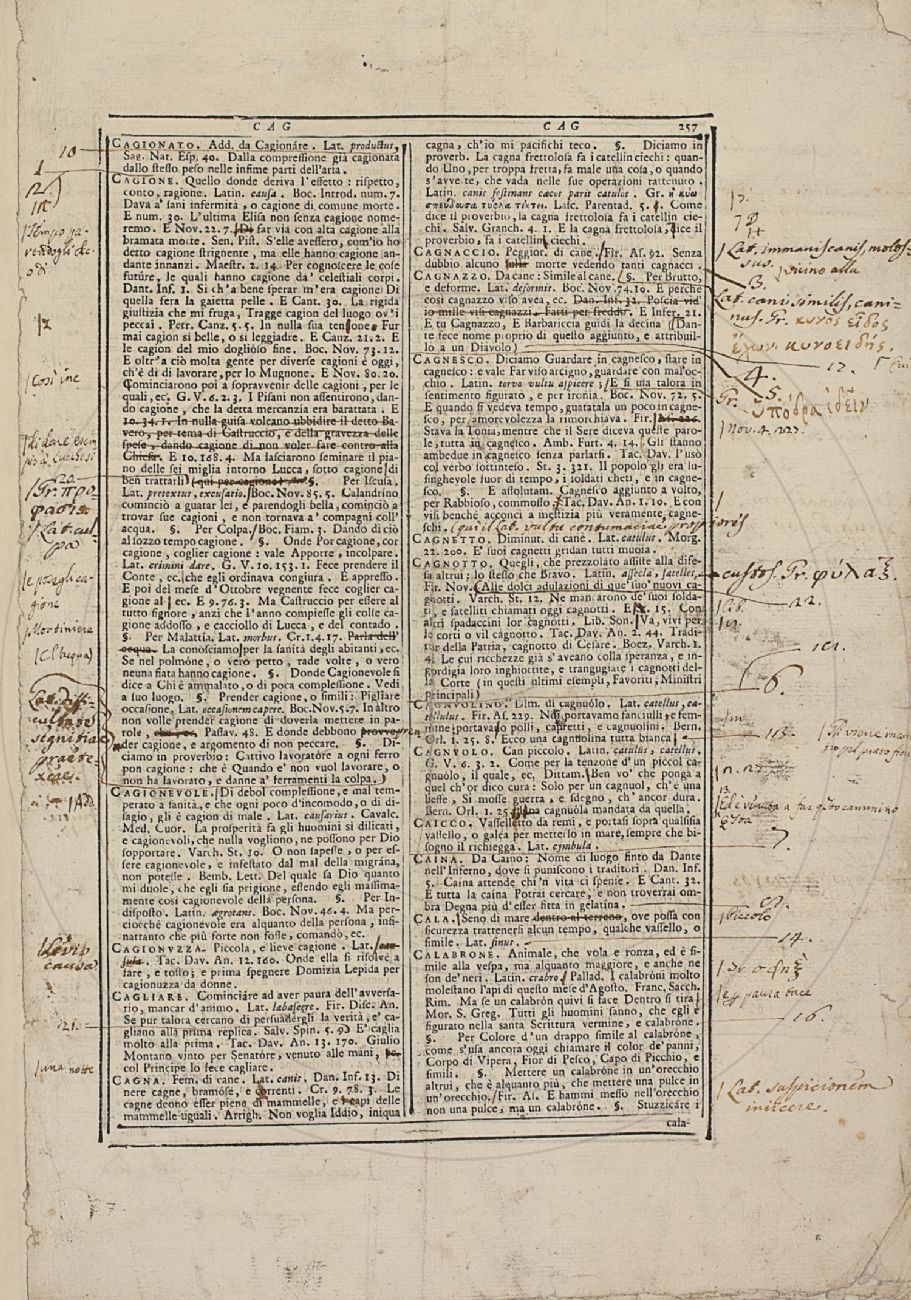 CAG
CAG 257
CAGIONATO. Add. da Cagionáre. Lat. productus,
Sag. Nat. Esp. 40. Dalla compressione già cagionata
dallo stesso peso nelle infime parti dell'aria.
CAGIONE. Quello donde deriva l'effetto: rispetto,
conto, ragione. Latin. causa. Boc. Introd. num. 7.
Dava a' sani infermità, o cagione di comune morte.
E num. 30. L'ultima Elisa non senza cagione nome-
remo. E Nov. 22. 7. Di far via con alta cagione alla
bramata morte. Sen. Pist. S'elle avessero, com'io ho
detto cagione strignente, ma elle hanno cagione an-
dante innanzi. Maestr. 2. 14. Per cognoscere le cose
future, le quali hanno cagione da' celestiali corpi.
Dant. Inf. 1. Si ch'a bene sperar m'era cagione Di
quella fera la gaietta pelle. E Cant. 30. La rigida
giustizia che mi fruga, Tragge cagion del luogo ov'i
peccai. Petr. Canz. 5. 5. In nulla sua tenzone Fur
mai cagion si belle, o si leggiadre. E Canz. 21. 2. E
le cagion del mio doglioso fine. Boc. Nov. 73. 12.
E oltr'a ciò molta gente per diverse cagioni è oggi,
ch'è di di lavorare, per lo Mugnone. E Nov. 80. 20.
Cominciarono poi a sopravvenir delle cagioni, per le
quali, ec. G. V. 6. 2. 3. I Pisani non assentirono, dan-
do cagione, che la detta mercanzía era barattata. E
10. 34. 1. In nulla guisa voleano ubbidire il detto Ba-
vero, per tema di Castruccio, e della gravezza delle
spese, dando cagione di non voler fare contro alla
Chiesa. E 10. 168. 4. Ma lasciarono seminare il pia-
no delle sei miglia intorno Lucca, sotto cagione di
ben trattarli (qui per cagione) §. Per Iscusa.
Lat. pretextus, excusatio. Boc. Nov. 85. 5. Calandrino
cominciò a guatar lei, e parendogli bella, cominciò a
trovar sue cagioni, e non tornava a' compagni coll'
acqua. §. Per Colpa. Boc. Fiam. 3. Dando di ciò
al sozzo tempo cagione. §. Onde Por cagione, cor
cagione, coglier cagione: vale Apporre, incolpare.
Lat. crimini dare. G. V. 10. 153. 1. Fece prendere il
Conte, ec. che egli ordinava congiura. E appresso.
E poi del mese d'Ottobre vegnente fece coglier ca-
gione al, ec. E 9. 76. 3. Ma Castruccio per essere al
tutto signore, anzi che l'anno compiesse gli colse ca-
gione addosso, e cacciollo di Lucca, e del contado.
§. Per Malattía. Lat. morbus. Cr. 1. 4. 17. Parla dell'
acqua. La conosciamo per la sanità degli abitanti, ec.
Se nel polmóne, o vero petto, rade volte, o vero
neuna fiata hanno cagione. §. Donde Cagionevole si
dice a Chi è ammalato, o di poca complessione. Vedi
a suo luogo. §. Prender cagione, o simili: Pigliare
occasione. Lat. occasionem capere. Boc. Nov. 5. 7. In altro
non volle prender cagione di doverla mettere in pa-
role, che, ec. Passav. 48. E donde debbono provveg-
nder cagione, e argomento di non peccare. §. Di-
ciamo in proverbio: Cattivo lavoratóre a ogni ferro
pon cagione: che è Quando e' non vuol lavorare, o
non ha lavorato, e danne a' ferramenti la colpa.
CAGIONEVOLE. Di debol complessione, e mal tem-
perato a sanità, e che ogni poco d'incomodo, o di di-
sagio, gli è cagion di male. Lat. causarius. Cavalc.
Med. Cuor. La prosperità fa gli huomini si dilicati,
e cagionevoli, che nulla vogliono, ne possono per Dio
sopportare. Varch. St. 10. O non sapesse, o per es-
sere cagionevole, e infestato dal mal della migrána,
non potesse. Bemb. Lett. Del quale sa Dio quanto
mi duole, che egli sia prigione, essendo egli massima-
mente così cagionevole della persona. §. Per In-
disposto. Latin. ægrotans. Boc. Nov. 46. 4. Ma per-
ciocchè cagionevole era alquanto della persona, infi-
nattanto che più forte non fosse, comandò, ec.
CAGIONUZZA. Piccola, e lieve cagione. Lat. cau-
sula. Tac. Dav. An. 12. 160. Onde ella si risolvé a
fare, e tosto; e prima spegnere Domizia Lepida per
cagionuzza da donne.
CAGLIARE. Cominciáre ad aver paura dell'avversa-
rio, mancar d'animo. Lat. labascere. Fir. Disc. An.
Se pur talora cercano di persuadergli la verità, e' ca-
gliano alla prima replica. Salv. Spin. 5. 9. E' caglia
molto alla prima. Tac. Dav. An. 13. 170. Giulio
Montano vinto per Senatóre, venuto alle mani,
col Principe lo fece cagliare.
CAGNA. Fem. di cane. Lat. canis. Dan. Inf. 13. Di
nere cagne, bramóse, e correnti. Cr. 9. 78. 3. Le
cagne deono esser piene di mammelle, e capi delle
mammelle uguali. Arrigh. Non voglia Iddio, iniqua
cagna, ch'io mi pacifichi teco. §. Diciamo in
proverb. La cagna frettolosa fa i catellin ciechi: quan-
do Uno, per troppa fretta, fa male una cosa, o quando
s'avvede, che vada nelle sue operazioni rattenuto.
Latin. canis festinans cæcos parit catulos. Gr. ἡ κύων
σπεύδουσα τυφλὰ τίκτει. Lasc. Parentad. 5. 1. Come
dice il proverbio, la cagna frettolosa fa i catellin cie-
chi. Salv. Granch. 4. 1. E la cagna frettolosa, dice il
proverbio, fa i catellin ciechi.
CAGNACCIO. Peggior. di cane. Fir. As. 92. Senza
dubbio alcuno morte vedendo tanti cagnacci.
CAGNAZZO. Da cane: Simile al cane. §. Per Brutto,
e deforme. Lat. deformis. Boc. Nov. 74. 10. E perchè
così cagnazzo viso avea, ec. Dan. Inf. 32. Poscia vid'
io mille visi cagnazzi. Fatti per freddo. E Infer. 21.
E tu Cagnazzo, E Barbariccia guidi la decina (Dan-
te fece nome proprio di quello aggiunto, e attribuil-
lo a un Diavolo)
CAGNESCO. Diciamo Guardare in cagnesco, stare in
cagnesco: e vale Far viso arcigno, guardare con mal'oc-
chio. Latin. torvo vultu aspicere; E si usa talora in
sentimento figurato, e per ironía. Boc. Nov. 72. 5.
E quando si vedeva tempo, guatatala un poco in cagne-
sco, per amorevolezza la rimorchiava. Fir.
Stava la Tonia, mentre che il Sere diceva quelle paro-
le, tutta in cagnesco. Amb. Furt. 4. 14. Gli stanno
ambedue in cagnesco senza parlarsi. Tac. Dav. l'usò
col verbo sottinteso. St. 3. 321. Il popolo gli era lu-
singhevole fuor di tempo, i soldati cheti, e in cagne-
sco. §. E assolutam. Cagnesco aggiunto a volto,
per Rabbioso, commosso. Tac. Dav. An. 1. 10. E con
visi benchè acconci a mestizia più veramente cagne-
schi. (qui il Lat. vultu contumaciae propriores
CAGNETTO. Diminut. di cane. Lat. catulus. Morg.
22. 200. E suoi cagnetti gridan tutti muoia.
CAGNOTTO. Quegli, che prezzolato assiste alla dife-
sa altrui; lo stesso che Bravo. Latin. assecla, satelles,
Fir. Nov. (Alle dolci adulazioni di que'suo' nuovi ca-
gnotti. Varch. St. 12. Ne mancarono de' suoi solda-
ti, e satelliti chiamati oggi cagnotti. E 15. Con
altri spadaccini lor cagnotti. Lib. Son. Va, vivi per
le corti o vil cagnotto. Tac. Dav. An. 2. 44. Tradi-
tor della Patria, cagnotto di Cesare. Boez. Varch. 1.
4. Le cui ricchezze già s'aveano colla speranza, e in-
gordigia loro inghiottite, e trangugiate i cagnotti del-
la Corte (in questi ultimi esempli, Favoriti, Ministri
principali)
CAGNUOLINO. Dim. di cagnuólo. Lat. catellus, ca-
tellulus. Fir. As. 229. Noi portavamo fanciulli, e fem-
mine portavamo polli, capretti, e cagnuolini. Bern.
Orl. 1. 25. 8. Ecco una cagnuolina tutta bianca
CAGNUOLO. Can piccolo. Latin. catulus, catellus.
G. V. 6. 3. 2. Come per la tenzone d'un piccol ca-
gnuolo, il quale, ec. Dittam. Ben vo' che ponga a
quel ch'or dico cura: Solo per un cagnuol, ch'è una
beffe, Si mosse guerra, e sdegno, ch'ancor dura.
Bern. Orl. 1. 25. cagnuóla mandata da quella.
CAICCO. Vasselletto da remi, e portasi sopra qualsisia
vassello, o galéa per metterlo in mare, sempre che bi-
sogno il richiegga. Lat. cymbula.
CAINA. Da Caino: Nome di luogo finto da Dante
nell'Inferno, dove si puniscono i traditori. Dan. Inf.
5. Caina attende chi'n vita ci spense. E Cant. 32.
E tutta la caina Potrai cercare, e non troverrai om-
bra Degna più d'esser fitta in gelatina.
CALA. Seno di mare dentro al terreno, ove possa con
sicurezza trattenersi alcun tempo, qualche vassello, o
simile. Lat. sinus.
CALABRONE. Animale, che vola e ronza, ed è si-
mile alla vespa, ma alquanto maggiore, e anche ne
son de' neri. Latin. crabro. Pallad. I calabróni molto
molestano l'api di questo mese d'Agosto. Franc. Sacch.
Rim. Ma se un calabrón quivi si face Dentro si tira
Mor. S. Greg. Tutti gli huomini sanno, che egli è
figurato nella santa Scrittura vermine, e calabróne.
§. Per Colore d'un drappo simile al calabróne,
come s'usa ancora oggi chiamare il color de' panni,
Corpo di Vipera, Fior di Pesco, Capo di Picchio, e
simili. §. Mettere un calabróne in un'orecchio
altrui, che è alquanto più, che mettere una pulce in
un'orecchio. Fir. As. E hammi messo nell'orecchio
non una pulce, ma un calabróne. §. Stuzzicáre i
cala-
10
1
2.
20.
Gr. προ
φασις
Lat. cul-
pa
Mortiniere
(Acqua)
Lat. diffi-
Levis
causa
21.
una notte
Lat. immanis canis, molos-
sus.
vicino alla
3.
Lat. cani similis, cani-
nus. Gr. κυνὸς εἶδος
ἔχων. κυνοειδής.
4.
12.
5.
Gr. ὑπόδρα ἰδεῖν
Nov. 4. 223.
custos. Gr. φύλαξ.
22.
6.
7.
Piccolo
14.
Gr. σφήξ
16.
Lat. suspicionem
iniicere.